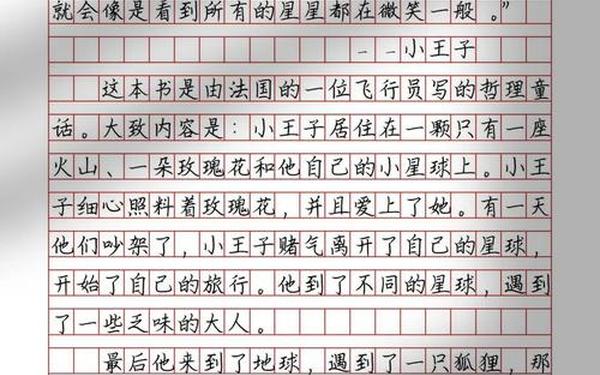 就会像是看到所有的星星都在微笑一般。”
——小王子
这本书是由法国的一位飞行员写的哲理童
话。大致内容是：小王子居住在一颗只有一座
火山、一朵玫瑰花和他自己的小星球上。小王
子细心照料着玫瑰花，并且爱上了她。有一天
他们吵架了，小王子赌气离开了自己的星球，
开始了自己的旅行。他到了不同的星球，遇到
了一些乏味的大人。
最后他来到了地球，遇到了一只狐狸，那